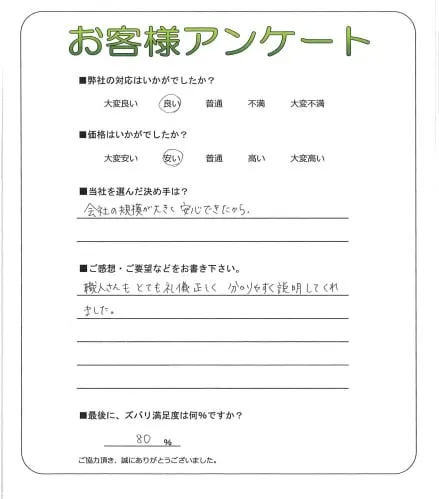 お客様アンケート
■弊社の対応はいかがでしたか?
大変良い 良い 普通 不満 大変不満
■価格はいかがでしたか?
大変安い 安い 普通 高い 大変高い
■当社を選んだ決め手は?
会社の規模が大きく安心できたから.
■ご感想・ご要望などをお書き下さい。
職人さんもとても礼儀正しく 分かりやすく説明してくれ
ました。
■最後に、ズバリ満足度は何%ですか?
80 %
ご協力頂き、誠にありがとうございました。